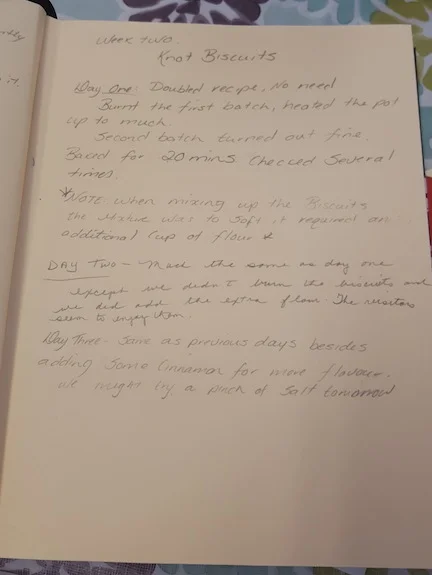 Week two
Knot Biscuits
Day One: Doubled recipe, No need
Burnt the first batch, heated the pot
up to much.
Second batch turned out fine.
Baked for 20 mins Checked Several
times.
*Note when mixing up the Biscuits
the mixture was to soft, it required an
additional Cup of flour *
Day Two - Made the same as day one
except we didn't burn the biscuits and
we did add the extra flour. The visitors
seem to enjoy them.
Day Three - Same as previous days besides
adding some Cinnamon for more flavour.
we might try a pinch of salt tomorrow